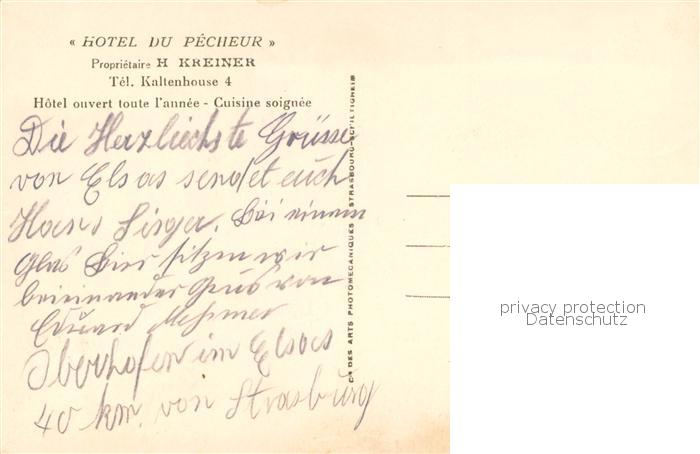 « HOTEL DU PÊCHEUR »
Propriétaire H KREINER
Tél. Kaltenhouse 4
Hôtel ouvert toute l'année - Cuisine soignée
Die Herzliechste Grüsse
von Elsas sendet euch
Hans Singer. Bei einem
Glas Bier sitzen wir
beieinander Grus von
Eduard
Oberhofen im Elsas
40 km. von Strasburg
Cie DES ARTS PHOTOMECANIQUES STRASBOURG-SCHILTIGHEIM
privacy protection
Datenschutz